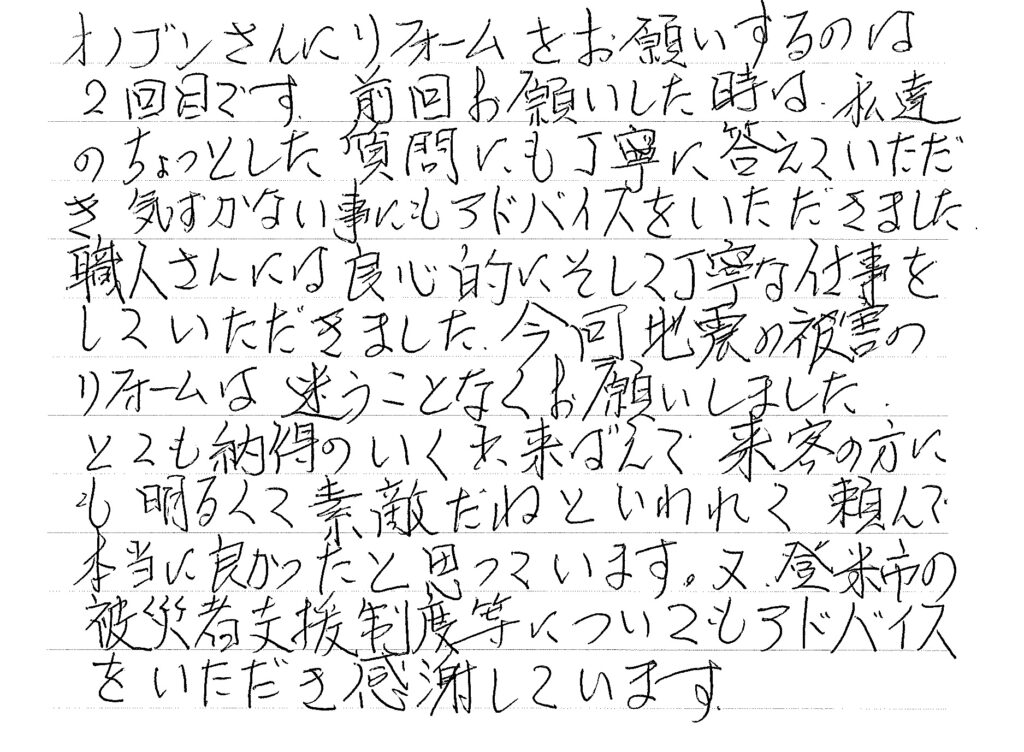 オノゴンさんにリフォームをお願いするのは
2回目です. 前回お願いした時は、私達
のちょっとした質問にも丁寧に答えていただ
き 気ずかない事にもアドバイスをいただきました.
職人さんには良心的にそして丁寧な仕事を
していただきました. 今回地震の被害の
リフォームは 迷うことなくお願いしました.
とても納得のいく出来ばえで 来客の方に
も 明るくて素敵だねといわれて 頼んで
本当に良かったと思っています。又、登米市の
被災者支援制度等についてもアドバイス
をいただき感謝しています.